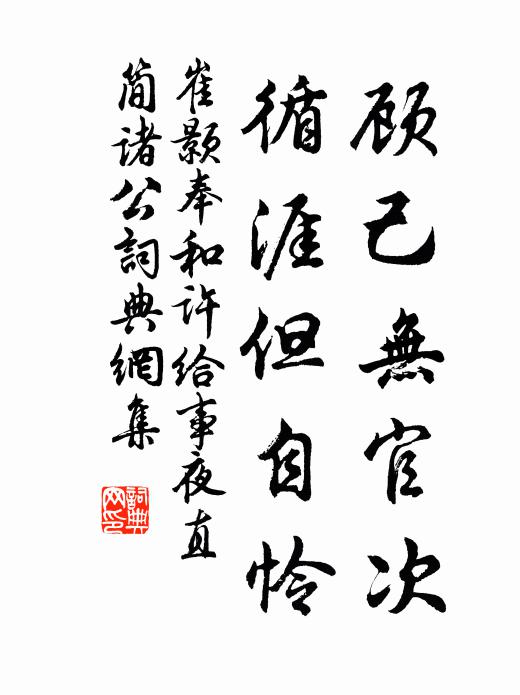 顾己無官次
循涯但自怜
崔颢奉和许给事夜直
简诸公詞典網集
詞典网印